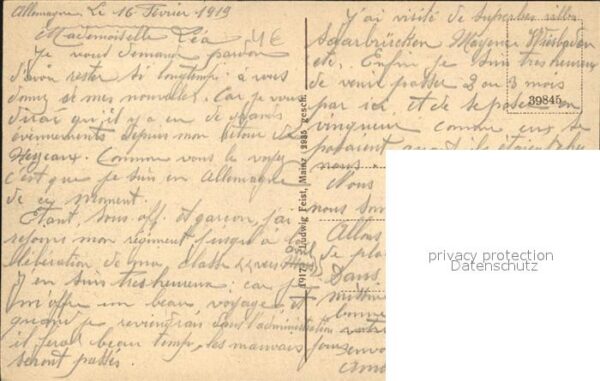 Allemagne, Le 16 Février 1919
Mademoiselle Léa
Je vous demande pardon
d'avoir rester si longtemps à vous
donner de mes nouvelles. Car je vous
dirai qu'il y a eu de grands
évènements depuis mon retour de
Meyzeaux. Comme vous le voyez
c'est que je suis en Allemagne
de ce moment.
Etant, sous off. et garçon, j'ai
rejoins mon régiment jusqu'à la
libération de ma classe vers
J'en suis très heureux car je
m'offre un beau voyage et
quand je reviendrais dans l'administration
il fera beau temp, les mauvais
seront passés.
J'ai visité de superbes villes
Saarbrücken Mayence Wiesbaden
etc. Enfin je suis très heureux
de venir passer 2 ou 3 mois
par ici et de se poser en
vainqueur comme eux se
posaient quand ils étaient chez
nous.
Nous
nous som
Allons
de pl
Dans
bonne
votre
4€
39845
1917 Ludwig Feist, Mainz 2985 gesch.
privacy protection
Datenschutz